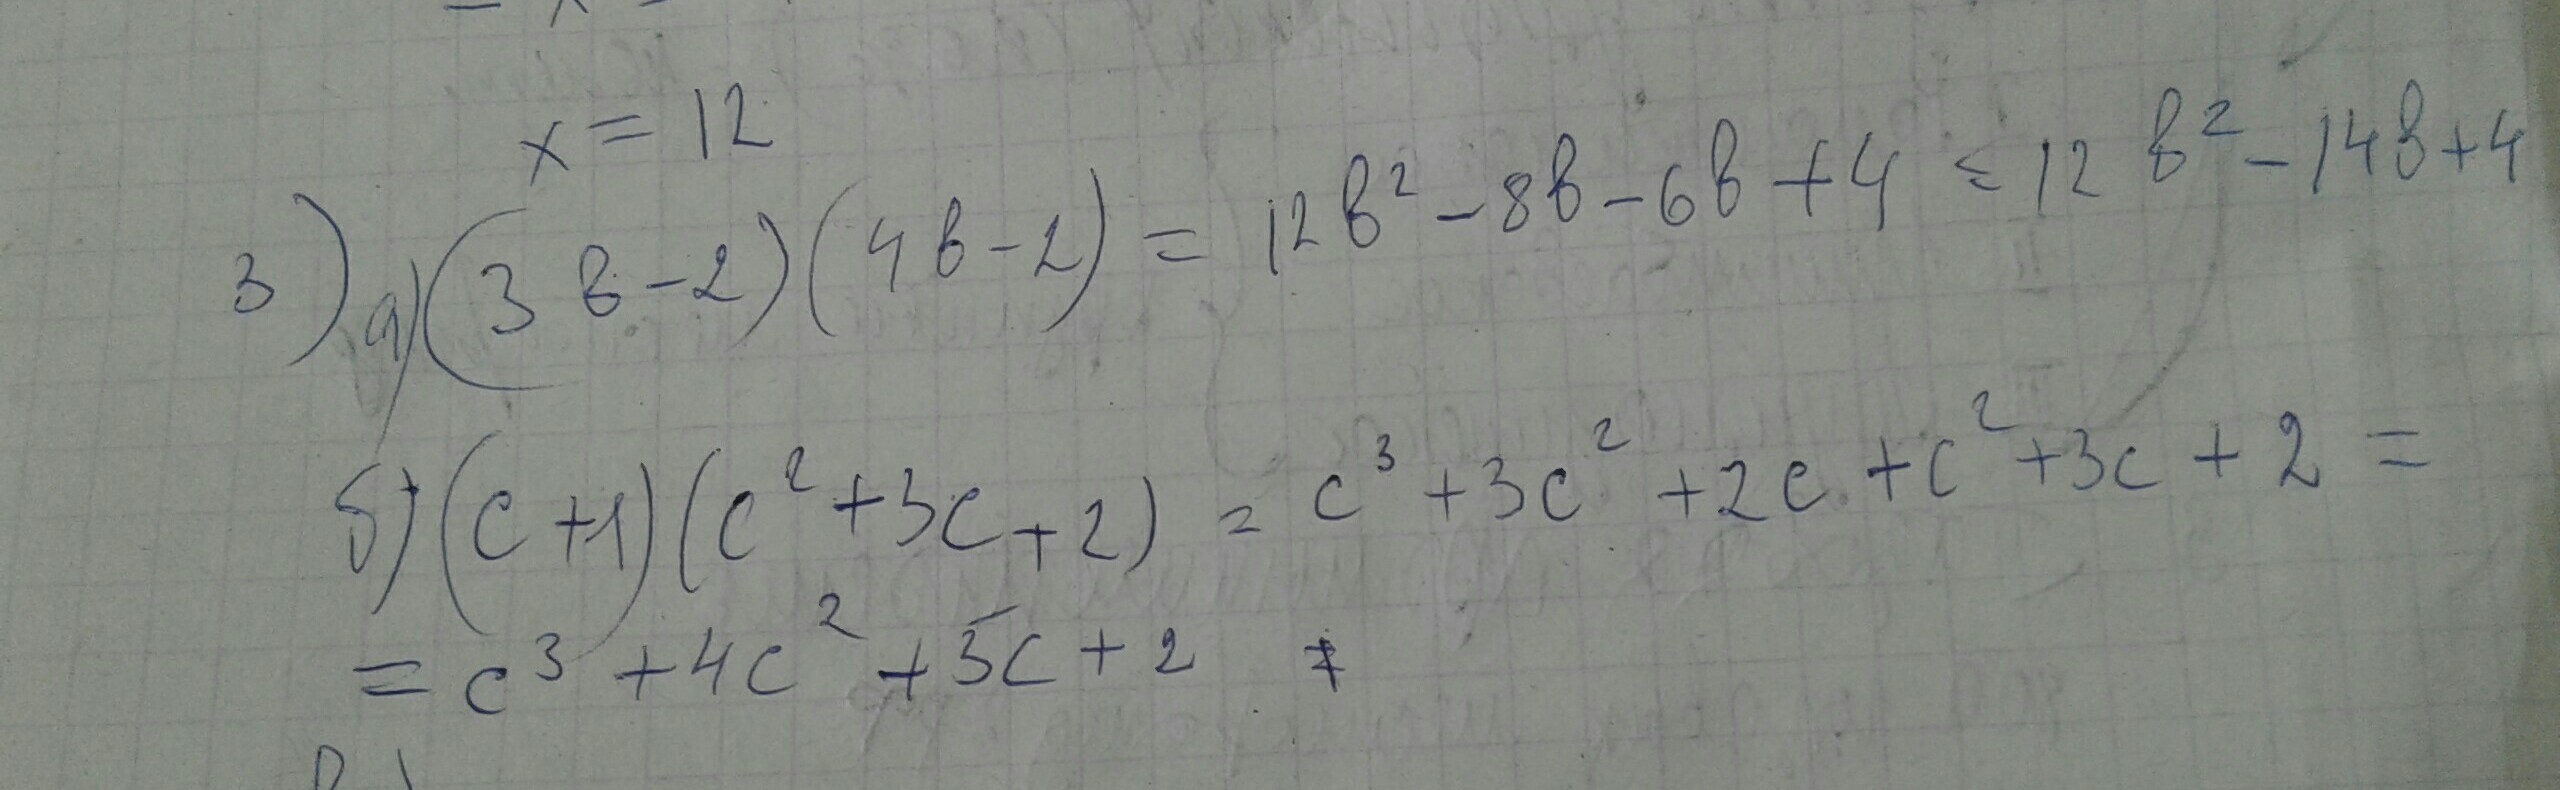 x = 12
3) а) (3в-2)(4в-2) = 12в² - 8в - 6в + 4 = 12в² - 14в + 4
б) (с+1)(с²+3с+2) = с³ + 3с² + 2с + с² + 3с + 2 =
= с³ + 4с² + 5с + 2